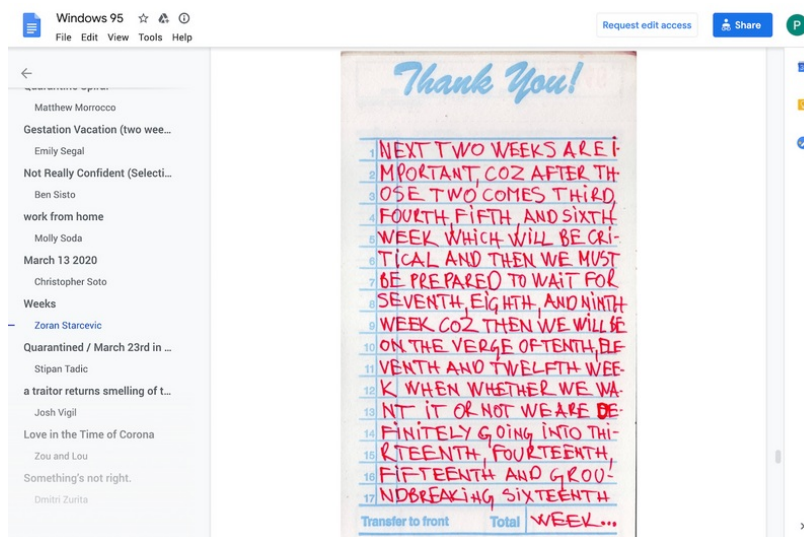 Windows 95
File Edit View Tools Help
Request edit access
Share
P
Matthew Morrocco
Gestation Vacation (two wee...
Emily Segal
Not Really Confident (Selecti...
Ben Sisto
work from home
Molly Soda
March 13 2020
Christopher Soto
Weeks
Zoran Starcevic
Quarantined / March 23rd in ...
Stipan Tadic
a traitor returns smelling of t...
Josh Vigil
Love in the Time of Corona
Zou and Lou
Something's not right.
Dmitri Zurita
Thank You!
1 NEXT TWO WEEKS ARE i-
2 MPORTANT, COZ AFTER TH-
3 OSE TWO COMES THiRD,
4 FOURTH, FiFTH, AND SiXTH
5 WEEK WHiCH WiLL BE CRi-
6 TiCAL AND THEN WE MUST
7 BE PREPARED TO WAiT FOR
8 SEVENTH, EiGHTH, AND NiNTH
9 WEEK COZ THEN WE WiLL BE
10 ON THE VERGE OF TENTH, ELE-
11 VENTH AND TWELFTH WEE-
12 K WHEN WHETHER WE WA-
13 NT iT OR NOT WE ARE DE-
14 FiNiTELY GOiNG iNTO THi-
15 RTEENTH, FOURTEENTH,
16 FiFTEENTH AND GROU-
17 NDBREAKiNG SiXTEENTH
Transfer to front Total WEEK...